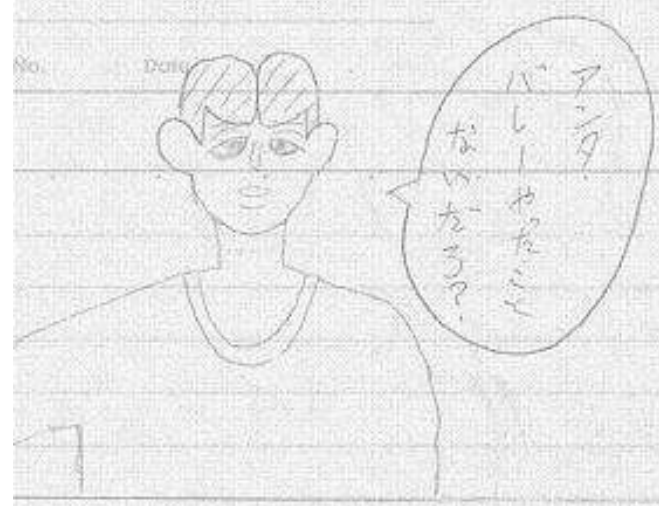 No.
Date
アンタ、
バレーやったこと
ないだろ？